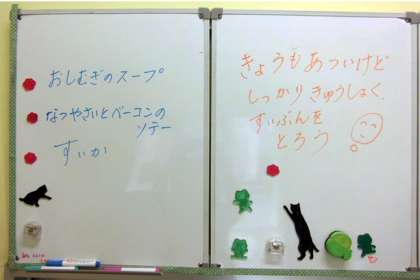 おしむぎのスープ
なつやさいとベーコンの
ソテー
すいか
きょうもあついけど
しっかりきゅうしょく、
すいぶんを
とろう